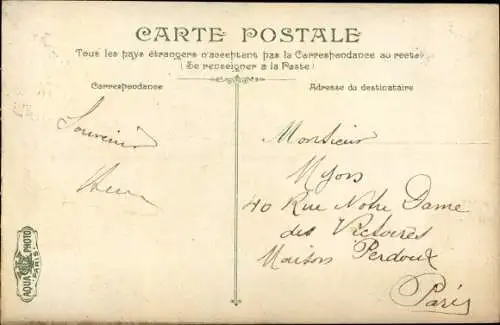 CARTE POSTALE
Tous les pays étrangers n'acceptent pas la Correspondance au recto
(Se renseigner à la Poste)
Correspondance
Adresse du destinataire
Souvenir
Monsieur
Myon
40 Rue Notre Dame
des Victoires
Maison Perdoux
Paris
AQUA PHOTO
PARIS